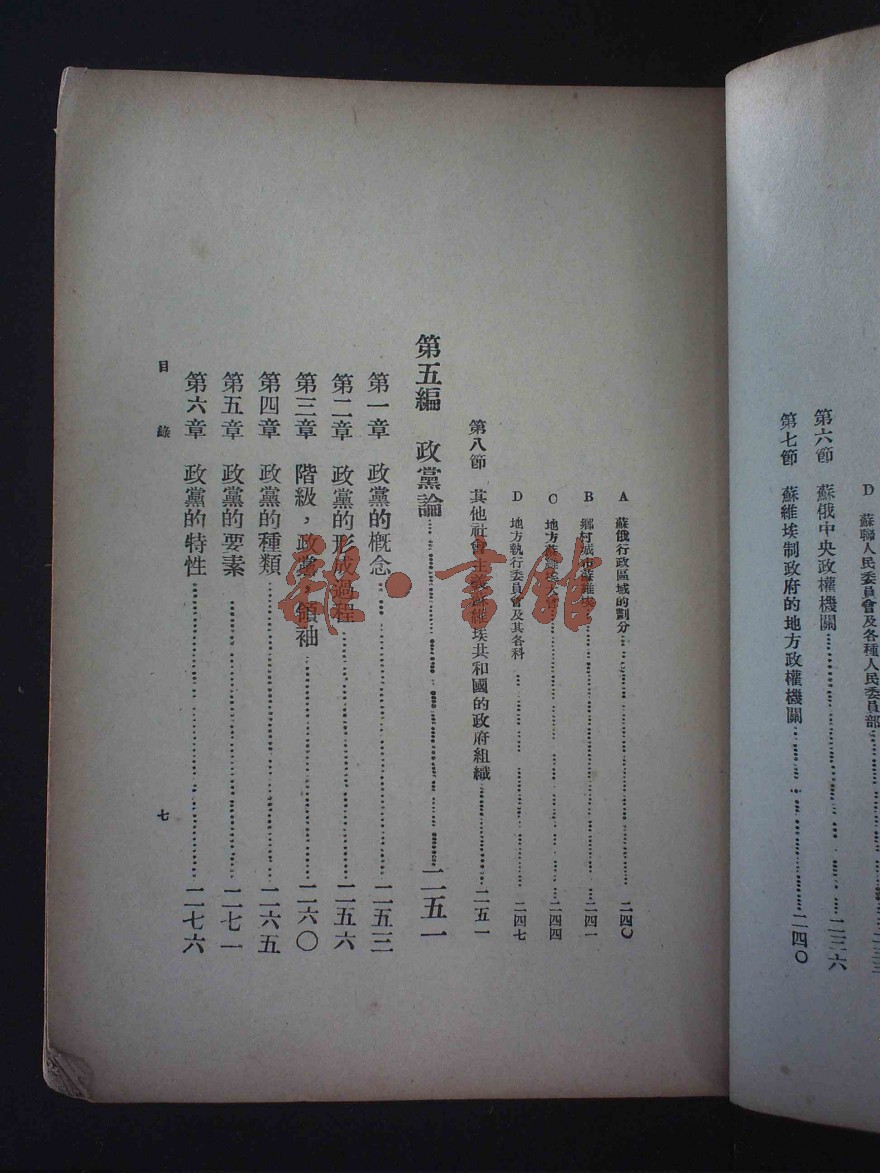 D 蘇聯人民委員會及各種人民委員部……二三三
第六節 蘇俄中央政權機關……二三六
第七節 蘇維埃制政府的地方政權機關……二四〇
A 蘇俄行政區域的劃分……二四〇
B 鄉村城市蘇維埃……二四一
C 地方蘇維埃大會……二四四
D 地方執行委員會及其各科……二四七
第八節 其他社會主義蘇維埃共和國的政府組織……二五一
第五編 政黨論……二五一
第一章 政黨的概念……二五三
第二章 政黨的形成過程……二五六
第三章 階級，政黨，領袖……二六〇
第四章 政黨的種類……二六五
第五章 政黨的要素……二七一
第六章 政黨的特性……二七六
目錄
七